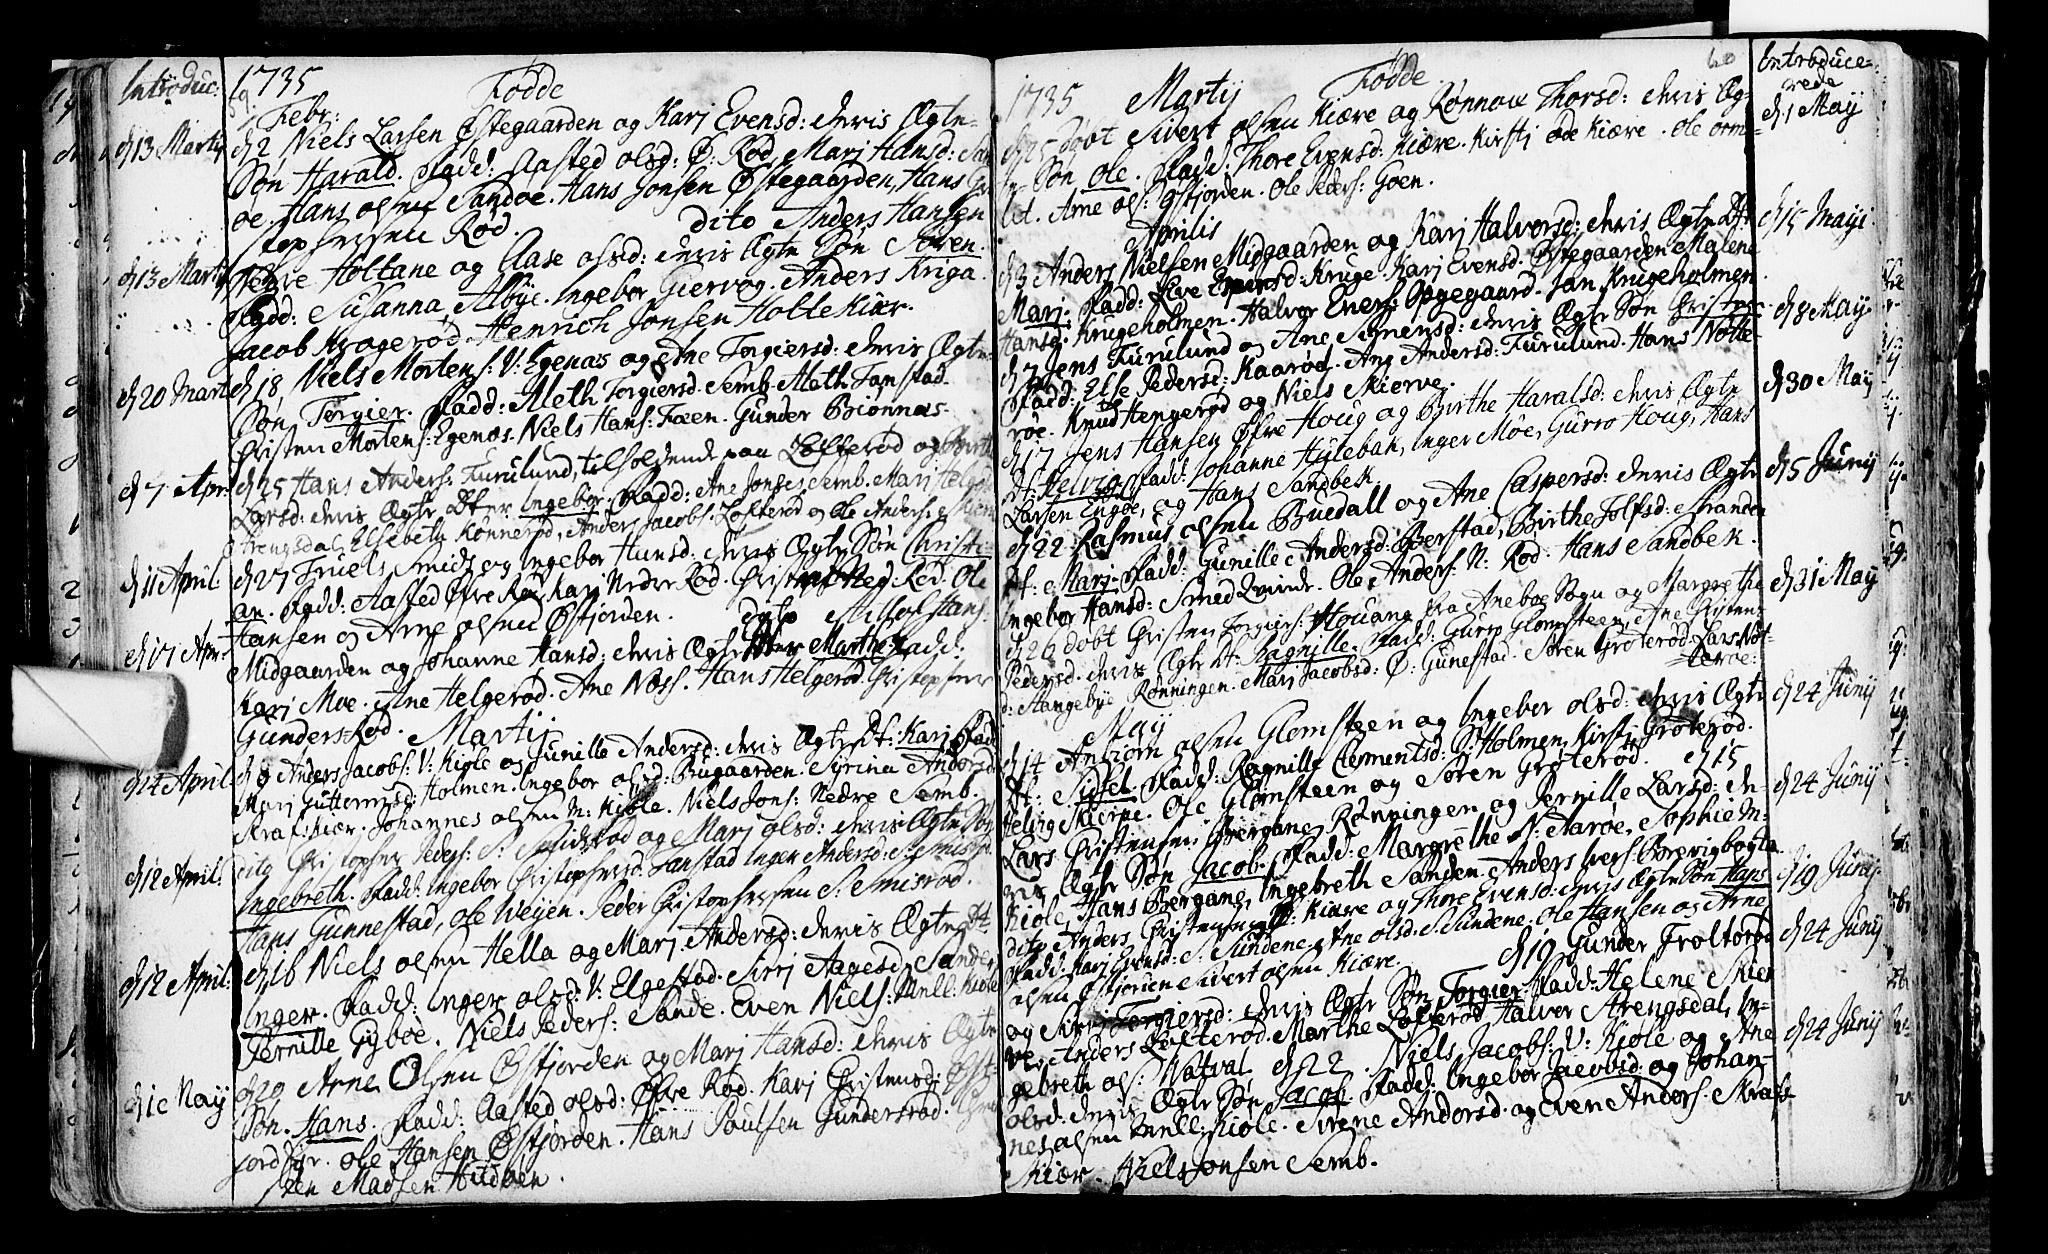 Introduc:
d 13 Martij
d 13 Martij
d 20 Marti
d 7 Apr:
d 11 April
d 17 Apr:
d 14 April
d 12 April:
d 12 April:
d 1 May
1735 Fødde
Febr:
d 2 Niels Larsen Østegaarden og Karj Evensd: deris Ægte
Søn Harald. Fadd: Aasted olsd: Ø: Rød, Marj Hansd: San
oe. Hans olsen Sandøe. Hans Jonsen Østegaarden, Hans
stophersen Rød. dito Anders Hansen
Holtane og Aase olsd: deris Ægte Søn Søren.
Fadd: Susanna Albye. Ingebor Giervog. Anders Kriga.
Jacob Krogerød. Henrich Jonsen Holtekiær.
d 18 Niels Mortens: V: Egenæs og Ane Torgiersd: deris Ægte
Søn Torgier. Fadd: Aleth Torgiersd. Semb. Aleth Fanstad.
Christen Mortens: Egenæs. Niels Hans: Foen. Gunder Biønnæs.
d 25 Hans Anders: Furulund, tilholdende paa Lofterød og Birth
Larsd: deris Ægte Dtter Ingebor. Fadd: Ane Jonses Semb. Marj Helge
Arengsdal, Elsebeth Kønnerød, Anders Jacobs: Lofterød og Ole Anders:
d 27 Truels Smids og Ingebor Hansd: deris Ægte Søn Christi-
an. Fadd: Aasted Øfre Rød, Karj Nedre Rød. Rød. Ole
Hansen og Arne olsen Østjorden. dito Hans:
Midgaarden og Johanne Hansd: deris Ægte Dtter Marthe. Fadd:
Karj Moe. Ane Helgerød. Ane Næss. Hans Helgerød. Christopher
Gunders Rød. Martij
d 8 Anders Jacobs: V: Kiøle og Gunille Andersd: deris Ægte Dt: Karj. Fadd
Marj Guttormsd: Holmen. Ingebor olsd: Bugaarden. Syrina Andersd
Skrafskiær. Johannes olsen M: Kiøle. Niels Jons: Nedre Semb.
dito Christopher Peders: S: Smidsrød og Marj olsd: deris Ægte Søn
Ingebreth. Fadd: Ingebor Christophersd: Fanstad. Inger Andersd: S: Smisrø
Hans Gunnestad, Ole Weyen. Peder Christophersen S: Smisrød.
d 16 Niels olsen Hella og Marj Andersd: deris Ægte Dt.
Inger. Fadd: Inger olsd: V: Elgestad. Sirrj Aagesd. Sande
Pernille Gyboe. Niels Peders: Sande. Even Niels: Mell: Kiøle
d 20 Arne Olsen Østjorden og Marj Hansd: deris Ægte
Søn. Hans. Fadd: Aasted olsd: Øfre Rød. Karj Christensd:
Ole Hansen Østjorden. Hans Poulsen Gundersrød.
sten Madsen Hudøen.
1735 Martij Fødde 60
d 25 døbt Sivert olsen Kiære og Rønnow Thorsd: deris Æg-
te Søn, Ole. Fadd: Thore Evensd: Kiære. Kirstj ode Kiære. Ole orm-
let. Arne ols: Østjorden. Ole Peders: Goen.
Aprilis
d 3 Anders Nielsen Midgaarden og Karj Halvorsd: deris Ægte Dt:
Marj. Fadd: Eve Kruge. Karj Evensd. Østegaarden. Malene
Hansd: Krugeholmen. Halvor Evens: Opgegaard. Jan Krugeholmen.
d 7 Jens Furulund og Ane Simensd: deris Ægte Søn Christen
Fadd: Else Pedersd: Kaarød. Ane Andersd: Furulund. Hans Nøtte-
røe. Knud Hengerød og Niels Skierve.
d 17 Jens Hansen Øfre Houg og Birthe Haralsd: deris Ægte
Dt: Helvig. Fadd: Johanne Hylebak, Inger Moe, Gurro Houg, Hans
Larsen Engøe, og Hans Sandbek.
d 22 Rasmus olsen Buedall og Ane Caspersd: deris Ægte
Dt: Marj. Fadd: Gunille Andersd: Berstad, Birthe Tolfsd: Stranden
Ingebor Hansd: Smed Qvinde. Ole Anders: N: Rød. Hans Sandbek.
d 26 døbt Christen Torgiers: Houang fra Aneboe Sogn og Margrethe
Pedersd: deris Ægte Dt: Ragnille. Fadd: Gurro Glomsteen, Ane Christens-
d: Aangebye Rønningen. Marj Jacobsd: Ø: Gunestad. Søren Grøterød. Lars Nøt-
terøe:
May
d 14 Anbiørn olsen Glomsteen og Ingebor olsd: deris Ægte
Dt: Sidsel. Fadd: Ragnille Clementsd: S: Holmen, Kirstj Grøterød.
Helvig Skierpe. Ole Glomsteen og Søren Grøterød. d 15
Lars Christensen Bergane Rønningen og Pernille Larsd: de-
ris Ægte Søn Jacob. Fadd: Margrethe N: Aarøe, Sophie M:
Kiøle, Hans Bergane, Ingebreth Sanden. Anders Ivers: Brevigbogta
dito Anders Christens: Kiære og Thore Evensd: deris Ægte Søn Hans
Fadd: Karj Evensd: S: Sundene. Ane olsd: S: Sundene. Ole Hansen og Arne
olsen Østjorden Sivert olsen Kiære. d 19 Gunder Froltorød
og Sirrj Torgiersd: deris Ægte Søn Torgier. Fadd: Helene Skier
ve, Anders Lofterød. Marthe Lofterød Halvor Arengsdal, In-
gebreth ols: Watval. d 22 Niels Jacobs: V: Kiøle og Ane
olsd: deris Ægte Søn Jacob. Fadd: Ingebor Jacobsd: og Johan-
nes olsen Mell: Kiøle. Sirene Andersd. og Even Anders. Skrafs-
kiær. Niels Jonsen Semb.
Introduce-
rede
d 1 May
d 15 Maji
d 8 May
d 30 May
d 5 Junij
d 31 May
d 24 Junij
d 24 Junij
d 19 Junij
d 24 Junij
d 24 Junij